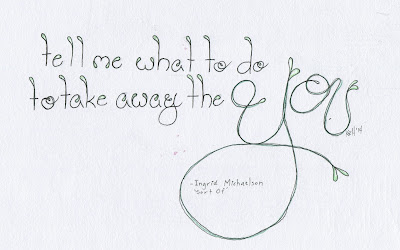 tell me what to do
to take away the you
-Ingrid Michaelson
"Sort Of"